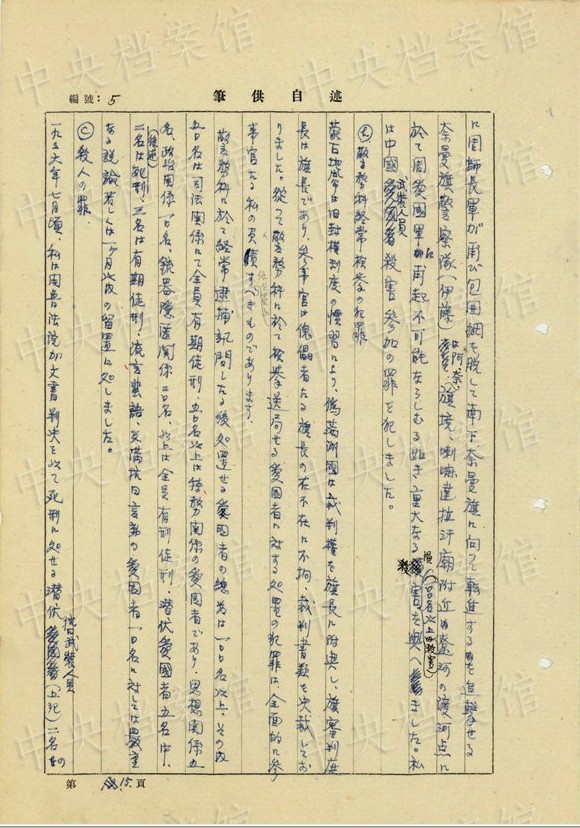 筆供自述
編號：5
に周師長軍が再び包囲網を脱して南下奈曼旗に向って転進するのを追撃せる
奈曼旗警察隊（伊藤）は阿奈、旗境、喇嘛達拉汗廟附近の老河の渡河点に
於て周愛國軍に再起不可能ならしむる如き重大なる損害（一〇名以上の殺害）を與へました。私
は中國武装人員殺害参加の罪を犯しました。
警務科経常検挙の犯罪
蒙百地帯は旧封建制度の慣習により、偽満洲國は裁判権を旗長に附與し、旗審判庭
長は旗長であり、参事官は傀儡者たる旗長の在不在に不拘、裁判書類を決裁してお
りました。従って警務科に於て検挙送局せる愛國者に対する処罰の犯罪は全面的に参
事官たる私の負うべきものであります。
警務科に於て経常逮捕訊問したる後処置せる愛國者の総数は一〇〇名以上、その内
五〇名は司法関係にて全員有期徒刑、五〇名以上は特務関係の愛國者であり、思想関係五
名、政治関係一〇名、銃器隠匿関係二〇名、以上は全員有期徒刑、潜伏愛國者五名中、
二名は死刑、三名は有期徒刑、流言蜚語、反満抗日言動の愛國者一〇名に対しては厳重
なる説諭若しくは一ヶ月以内の留置に処しました。
(C) 殺人の罪、
一九三六年七月頃、私は開魯法院が文書判決を以て死刑に処せる潜伏抗日武装人員（上記）二名の
第 15. 頁
中央档案馆